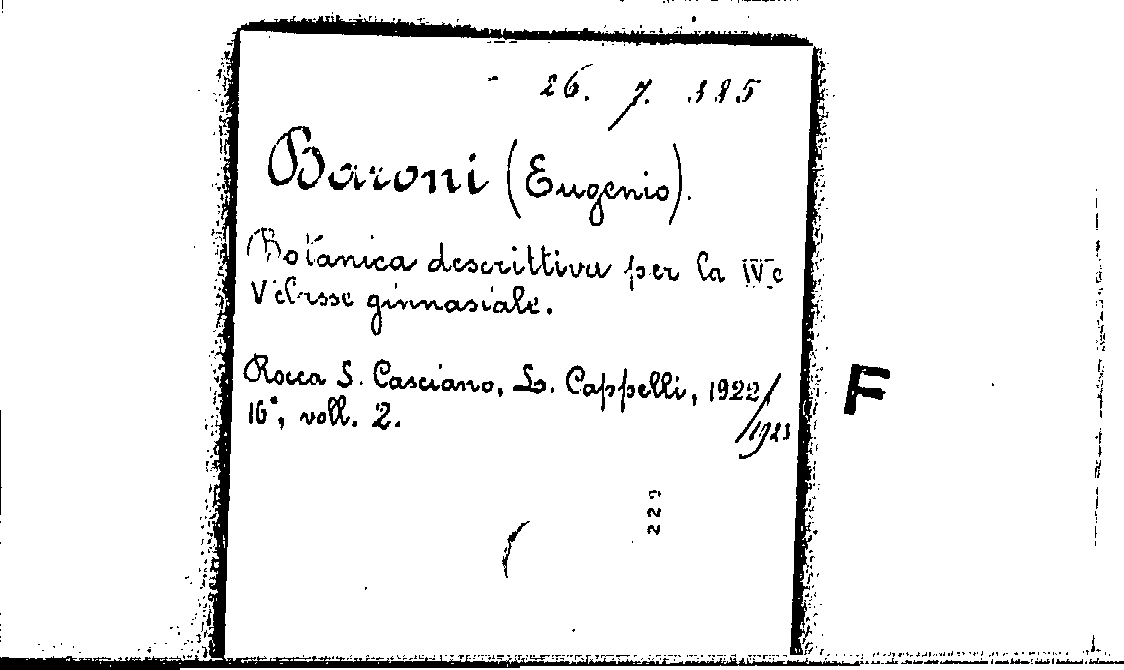 26. 7. 385
Baroni (Eugenio).
Botanica descrittiva per la IV e
V classe ginnasiale.
Rocca S. Casciano, L. Cappelli, 1922/
1923
16°, voll. 2.
F
229